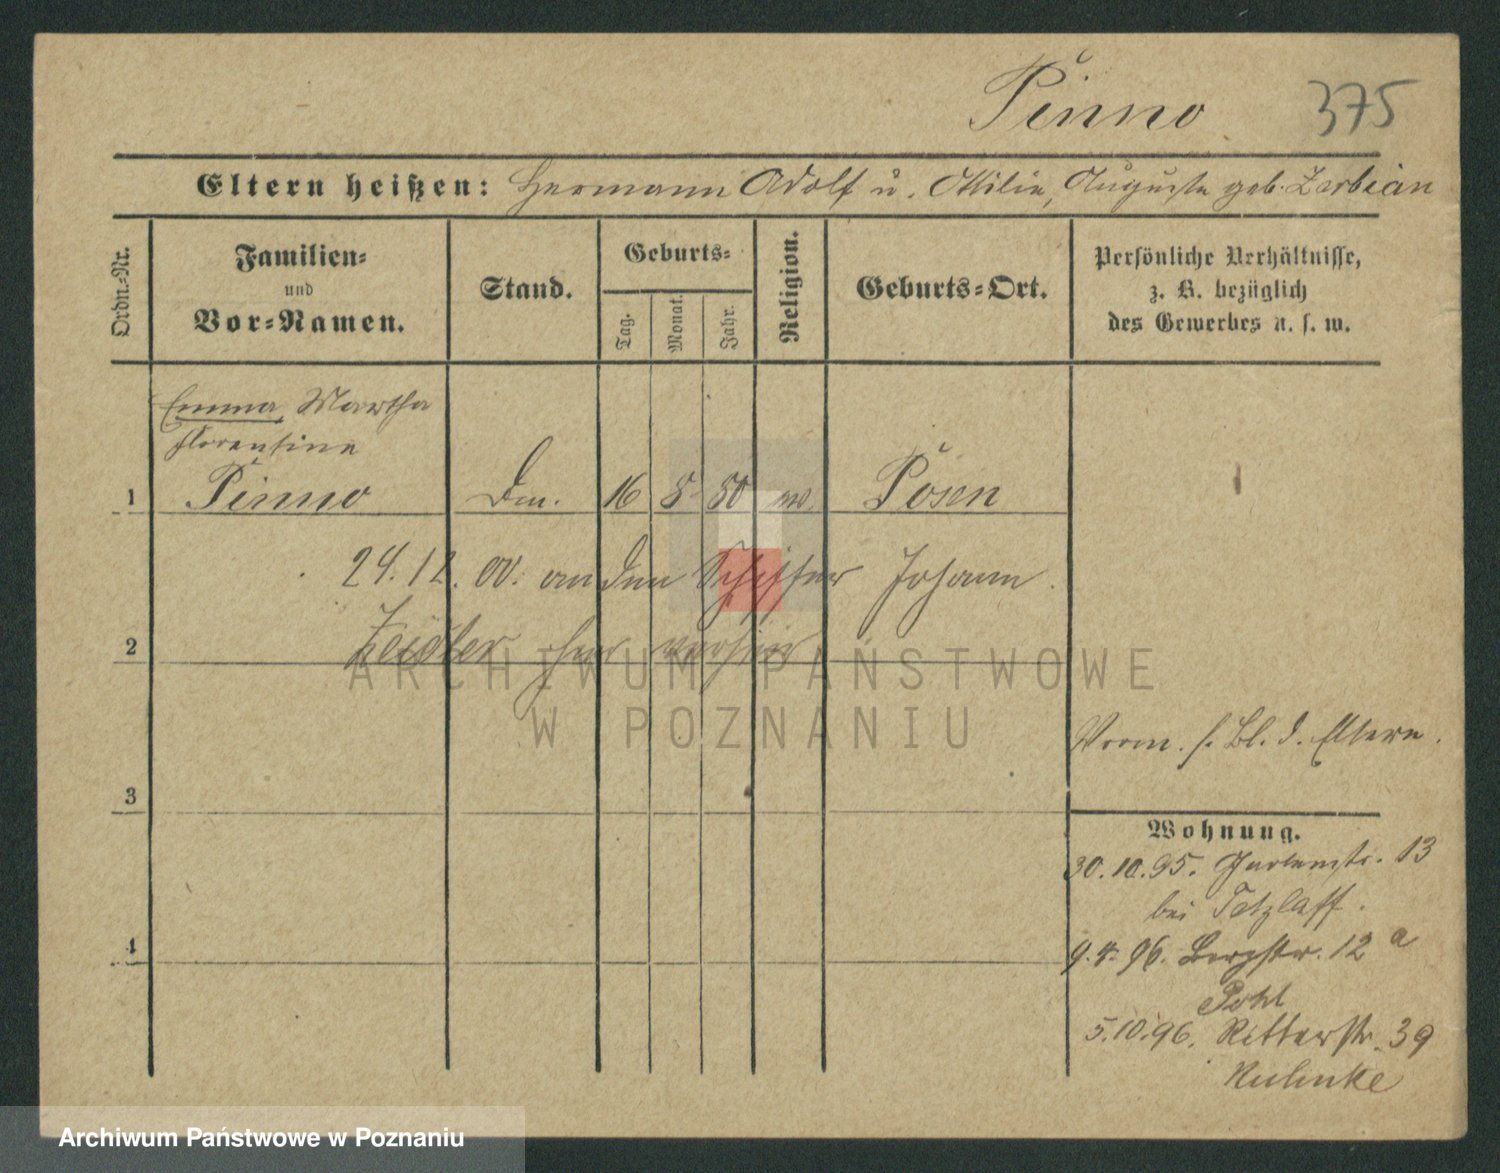 Pinno 375
Eltern heißen: Hermann Adolf u. Ottilie, Auguste geb. Zerbian
Ordn.-Nr.
Familien-
und
Vor-Namen.
Stand.
Geburts-
Tag.
Monat.
Jahr.
Religion.
Geburts-Ort.
Persönliche Verhältnisse,
z. B. bezüglich
des Gewerbes u. s. w.
Emma, Martha
Florentine
1 Pinno 16 5 80 Posen
24.12.00. an den Schiffer Johann
2 Zeidler
ARCHIWUM PAŃSTWOWE
W POZNANIU
Verm. s. Bl. d. Eltern.
3
Wohnung.
30.10.95. Gartenstr. 13
bei Tetzlaff.
4
9.4.96. Bergstr. 12 a
Pohl
5.10.96. Ritterstr. 39
Archiwum Państwowe w Poznaniu